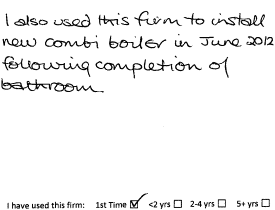 I also used this firm to install
new combi boiler in June 2012
following completion of
bathroom
I have used this firm: 1st Time ☑ <2 yrs ☐ 2-4 yrs ☐ 5+ yrs ☐